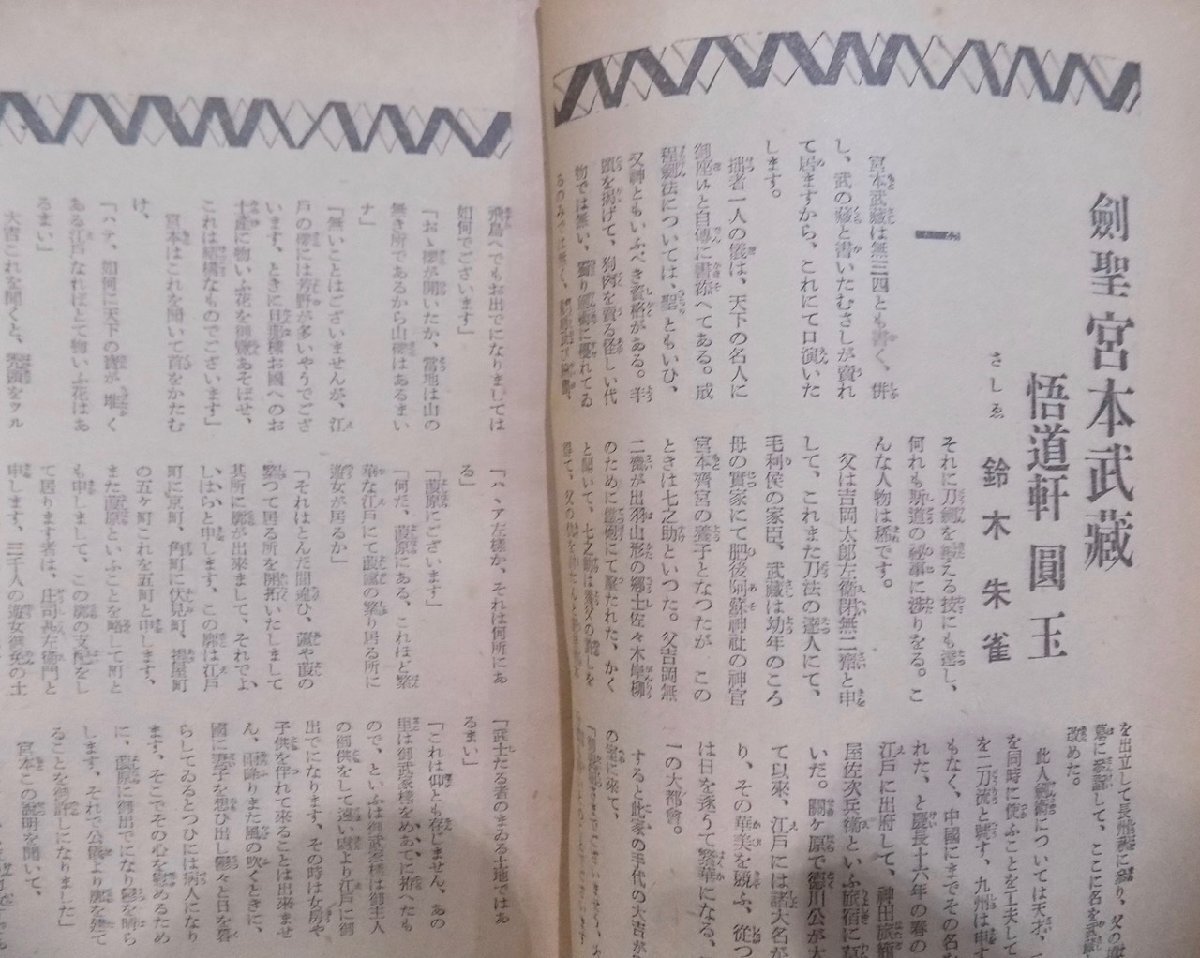 劍聖宮本武藏
悟道軒圓玉
さしゑ 鈴木朱雀
一
宮本武藏は無三四とも書く、併
し、武の藏と書いたむさしが賣れ
て居ますから、これにて口演いた
します。
拙者一人の儀は、天下の名人に
御座候と自傳に書添へてある。成
程劍法については、聖ともいひ、
又神ともいふべき資格がある。羊
頭を掲げて、狗肉を賣る怪しい代
物では無い、獨り劍術に優れてゐ
るのみでは無く、
それに刀劍を鍛える技にも達し、
何れも斯道の秘事に渉りをる。こ
んな人物は稀です。
父は吉岡太郎左衛門無二齋と申
して、これまた刀法の達人にて、
毛利侯の家臣、武藏は幼年のころ
母の實家にて肥後阿蘇神社の神官
宮本齊宮の養子となつたが この
ときは七之助といつた。父吉岡無
二齋が出羽山形の郷士佐々木岸柳
のために鐵砲にて撃たれた、かく
と聞いて、七之助は養父の許しを
得て、父の仇を
を出立して長熊
墓に參詣して、ここに名を武藏
改めた。
此人劍術については天才、
を同時に使ふことを工夫して
を二刀流と號す、九州は申す
もなく、中國にまでその名
れた、と慶長十六年の春の
江戸に出府して、神田旅籠
屋佐次兵衛といふ旅宿に
いだ。關ヶ原で德川公が大
て以來、江戸には諸大名が
り、その華美を競ふ、從つ
は日を逐うて繁華になる、
一の大都會。
すると此家の手代の大吉が
の座敷に來て、
飛鳥へでもお出でになりましては
如何でございます」
「おゝ櫻が開いたか、當地は山の
無き所であるから山櫻はあるまい
ナ」
「無いことはございませんが、江
戸の櫻には吉野が多いやうでござ
います、ときに旦那樣お國へのお
土産に物いふ花を御覽あそばせ、
これは結構なものでございます」
宮本はこれを聞いて首をかたむ
け、
「ハテ、如何に天下の寶が堆く
ある江戸なればとて物いふ花はあ
るまい」
大吉これを聞くと、
「ハヽア左樣か、それは何所にあ
る」
「葭原にございます」
「何だ、葭原にある、これほど繁
華な江戸にて葭蘆の繁り居る所に
遊女が居るか」
「それはとんだ間違ひ、葭や葭の
繁つて居る所を開拓いたしまして
其所に廓が出來まして、それでよ
しはらと申します、この廓は江戸
町に京町、角町に伏見町、揚屋町
の五ヶ町これを五町と申します、
また葭原といふことを略して町と
も申しまして、この廓の支配をし
て居ります者は、庄司甚左衛門と
申します、三千人の遊女御免の土
「武士たる者のまゐる土地ではあ
るまい」
「これは仰とも存じません、あの
里は御武家樣をめあてに拓へたも
ので、といふは御武家樣は御主人
の御供をして遠い國より江戸に御
出でになります、その時は女房や
子供を伴れて來ることは出來ませ
ん、雨降りまた風の吹くときに、
國に妻子を想ひ出し鬱々と日を暮
らしてゐるとつひには病人になり
ます、そこでその心を慰めるため
に、葭原に御出でになり鬱を晴ら
します、それで公儀より廓を建て
ることを御許しになりました」
宮本この説明を聞いて、